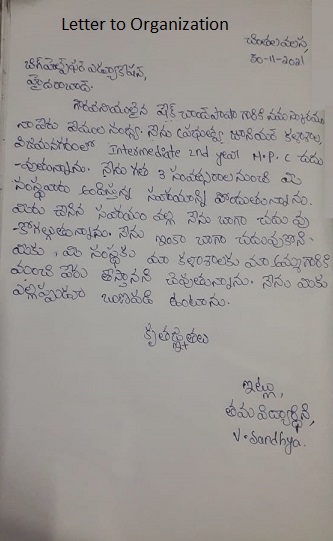 Letter to Organization
చింతలవలస,
30-11-2021
బిగ్‌హెల్ప్ ఫర్ ఎడ్యుకేషన్,
హైదరాబాద్.
గౌరవనీయులైన షేక్ చాంద్‌పాషా గారికి నమస్కారము
నా పేరు వేముల సంధ్య. నేను ప్రభుత్వ జూనియర్ కళాశాల
విజయనగరంలో Intermediate 2nd year M.P.C చదు
-వుతున్నాను. నేను గత 3 సంవత్సరాల నుంచి మీ
సంస్థవారు అందిస్తున్న సహాయాన్ని పొందుతున్నాను.
మీరు చేసిన సహాయం వల్ల నేను బాగా చదువు
-కోగల్గుతున్నాను. నేను ఇంకా బాగా చదువుకొని
మీకు, మీ సంస్థకు మా కళాశాలకు మా అమ్మగారికి
మంచి పేరు తెస్తానని చెపుతున్నాను. నేను మీకు
ఎల్లప్పుడూ ఋణపడి ఉంటాను.
కృతజ్ఞతలు
ఇట్లు,
తమ విద్యార్థిని,
V. Sandhya.